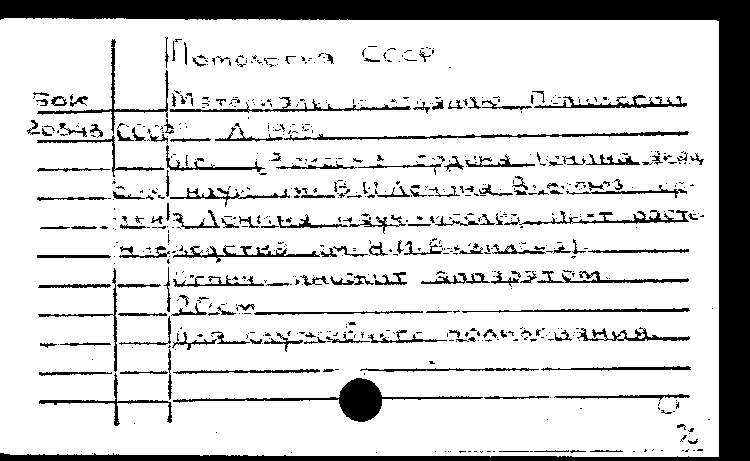 Помология СССР
Бок Материалы к изданию „Помологии
20343 СССР" Л. 1969.
61с. ( ордена Ленина акад
с.-х наук им. В.И.Ленина Всесоюз. ор-
дена Ленина науч.-исслед. ин-т расте-
ниеводства им. Н.И.Вавилова).
Отпеч. множит аппаратом.
20см
Для служебного пользования.